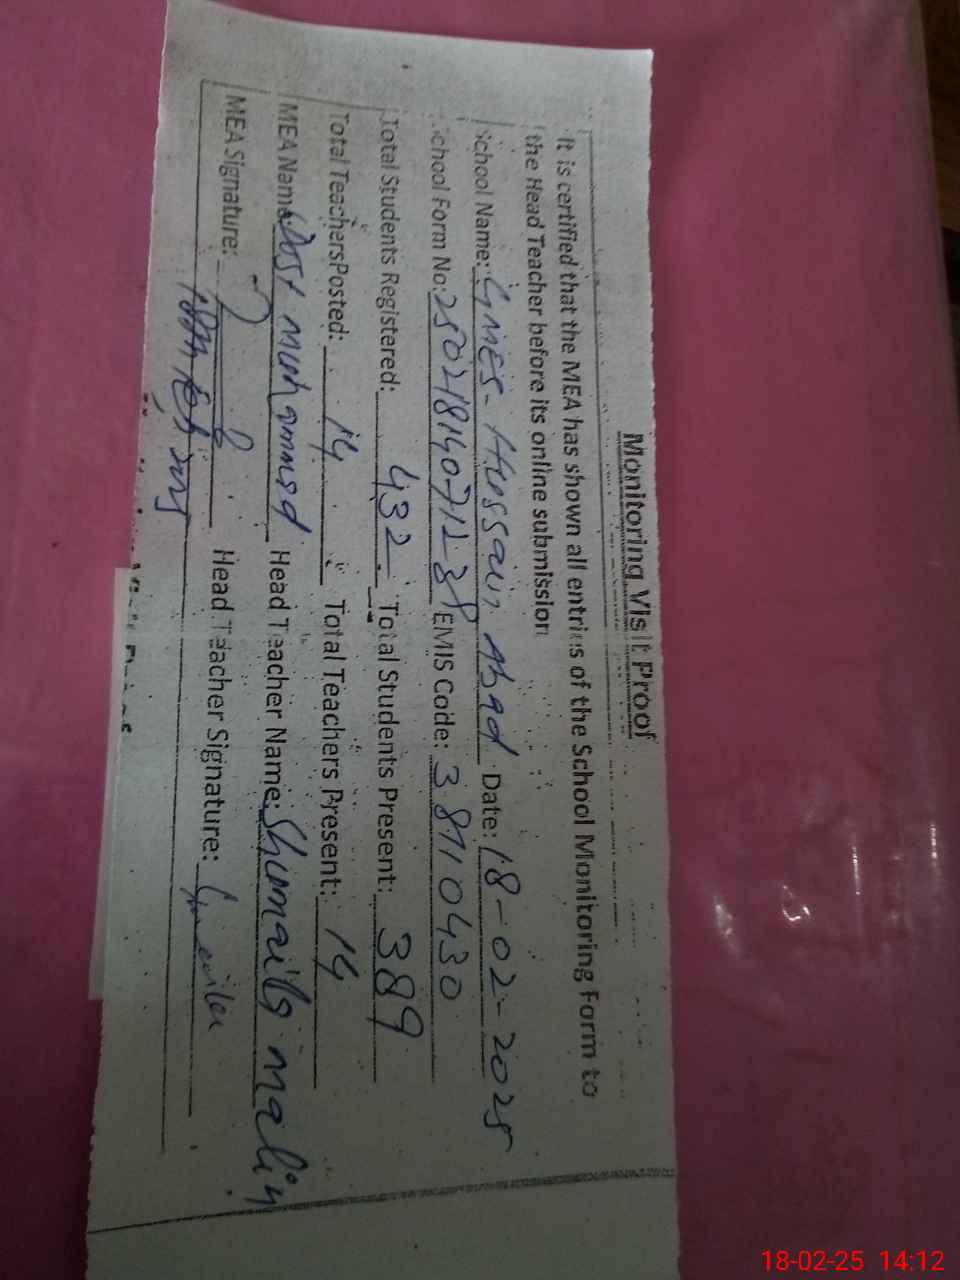 Monitoring Visit Proof
It is certified that the MEA has shown all entries of the School Monitoring Form to
the Head Teacher before its online submission
School Name: GMES- Hussain Abad Date: 18-02-2025
School Form No: EMIS Code: 38710430
Total Students Registered: 432 Total Students Present: 389
Total Teachers Posted: 14 Total Teachers Present: 14
MEA Name: Dost Muhammad Head Teacher Name: Shumaila
MEA Signature: Head Teacher Signature:
18-02-25 14:12